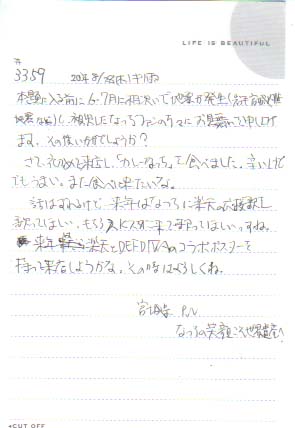 LIFE IS BEAUTIFUL
#
3359 2008 8/28(木)
本題に入る前に6~7月に相次いで地震が発生し(岩手・宮城内陸
地震など)、被災したなっちファンの方々にお見舞い申し上げ
ます。その後いかがでしょうか?
さて、初めて来店し「カレーなっち」を食べました。
でもうまい。また食べに来たいな。
話はずれるけど、来年はなっちに楽天の応援歌
歌ってほしい。もちろんKスタに来て歌ってほしいっすね。
来年 楽天とDEF.DIVAのコラボポスターを
持って来店しようかな。その時はよろしくね。
宮城 P.N
なっちの笑顔こそ世界遺産
CUT OFF